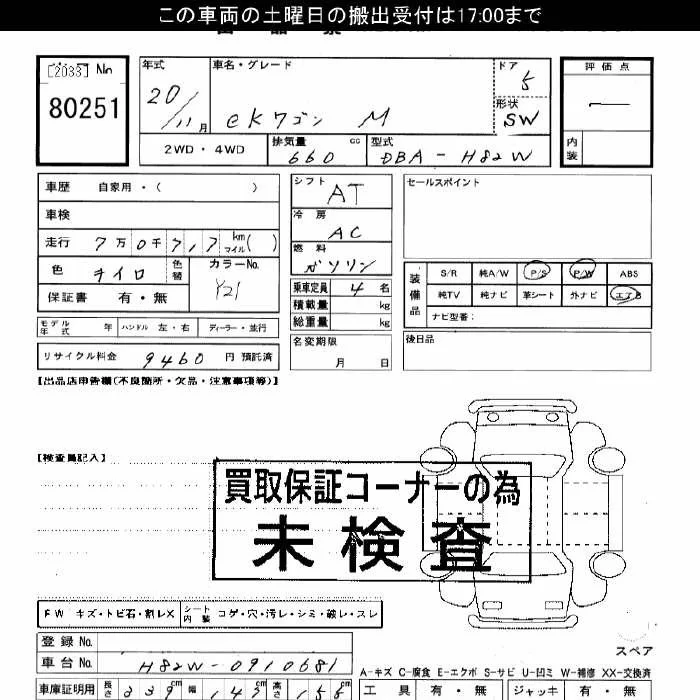 この車両の土曜日の搬出受付は17:00まで
[2033] No
80251
年式 20/11月
車名・グレード eKワゴン M
ドア 5
形状 SW
評価点 —
内装
2WD・4WD
排気量 660 cc
型式 DBA-H82W
車歴 自家用・( )
車検
走行 7万0千7,17 km マイル( )
色 キイロ 色替
カラーNo. Y21
保証書 有・無
シフト AT
冷房 AC
燃料 ガソリン
乗車定員 4名
積載量 kg
総重量 kg
名変期限 月 日
セールスポイント
装備品
S/R 純A/W P/S P/W ABS
純TV 純ナビ 革シート 外ナビ エアB
ナビ型番:
後日品
モデル年式 年 ハンドル 左・右 ディーラー・並行
リサイクル料金 9460 円 預託済
【出品店申告欄(不良箇所・欠品・注意事項等)】
【検査員記入】
買取保証コーナーの為
未検査
FW キズ・トビ石・割レX シート内装 コゲ・穴・汚レ・シミ・破レ・スレ
登録 No.
車台 No. H82W-0910681
スペア
A-キズ C-腐食 E-エクボ S-サビ U-凹ミ W-補修 XX-交換済
車庫証明用 長さ 339cm 幅 147cm 高さ 155cm
工具 有・無 ジャッキ 有・無